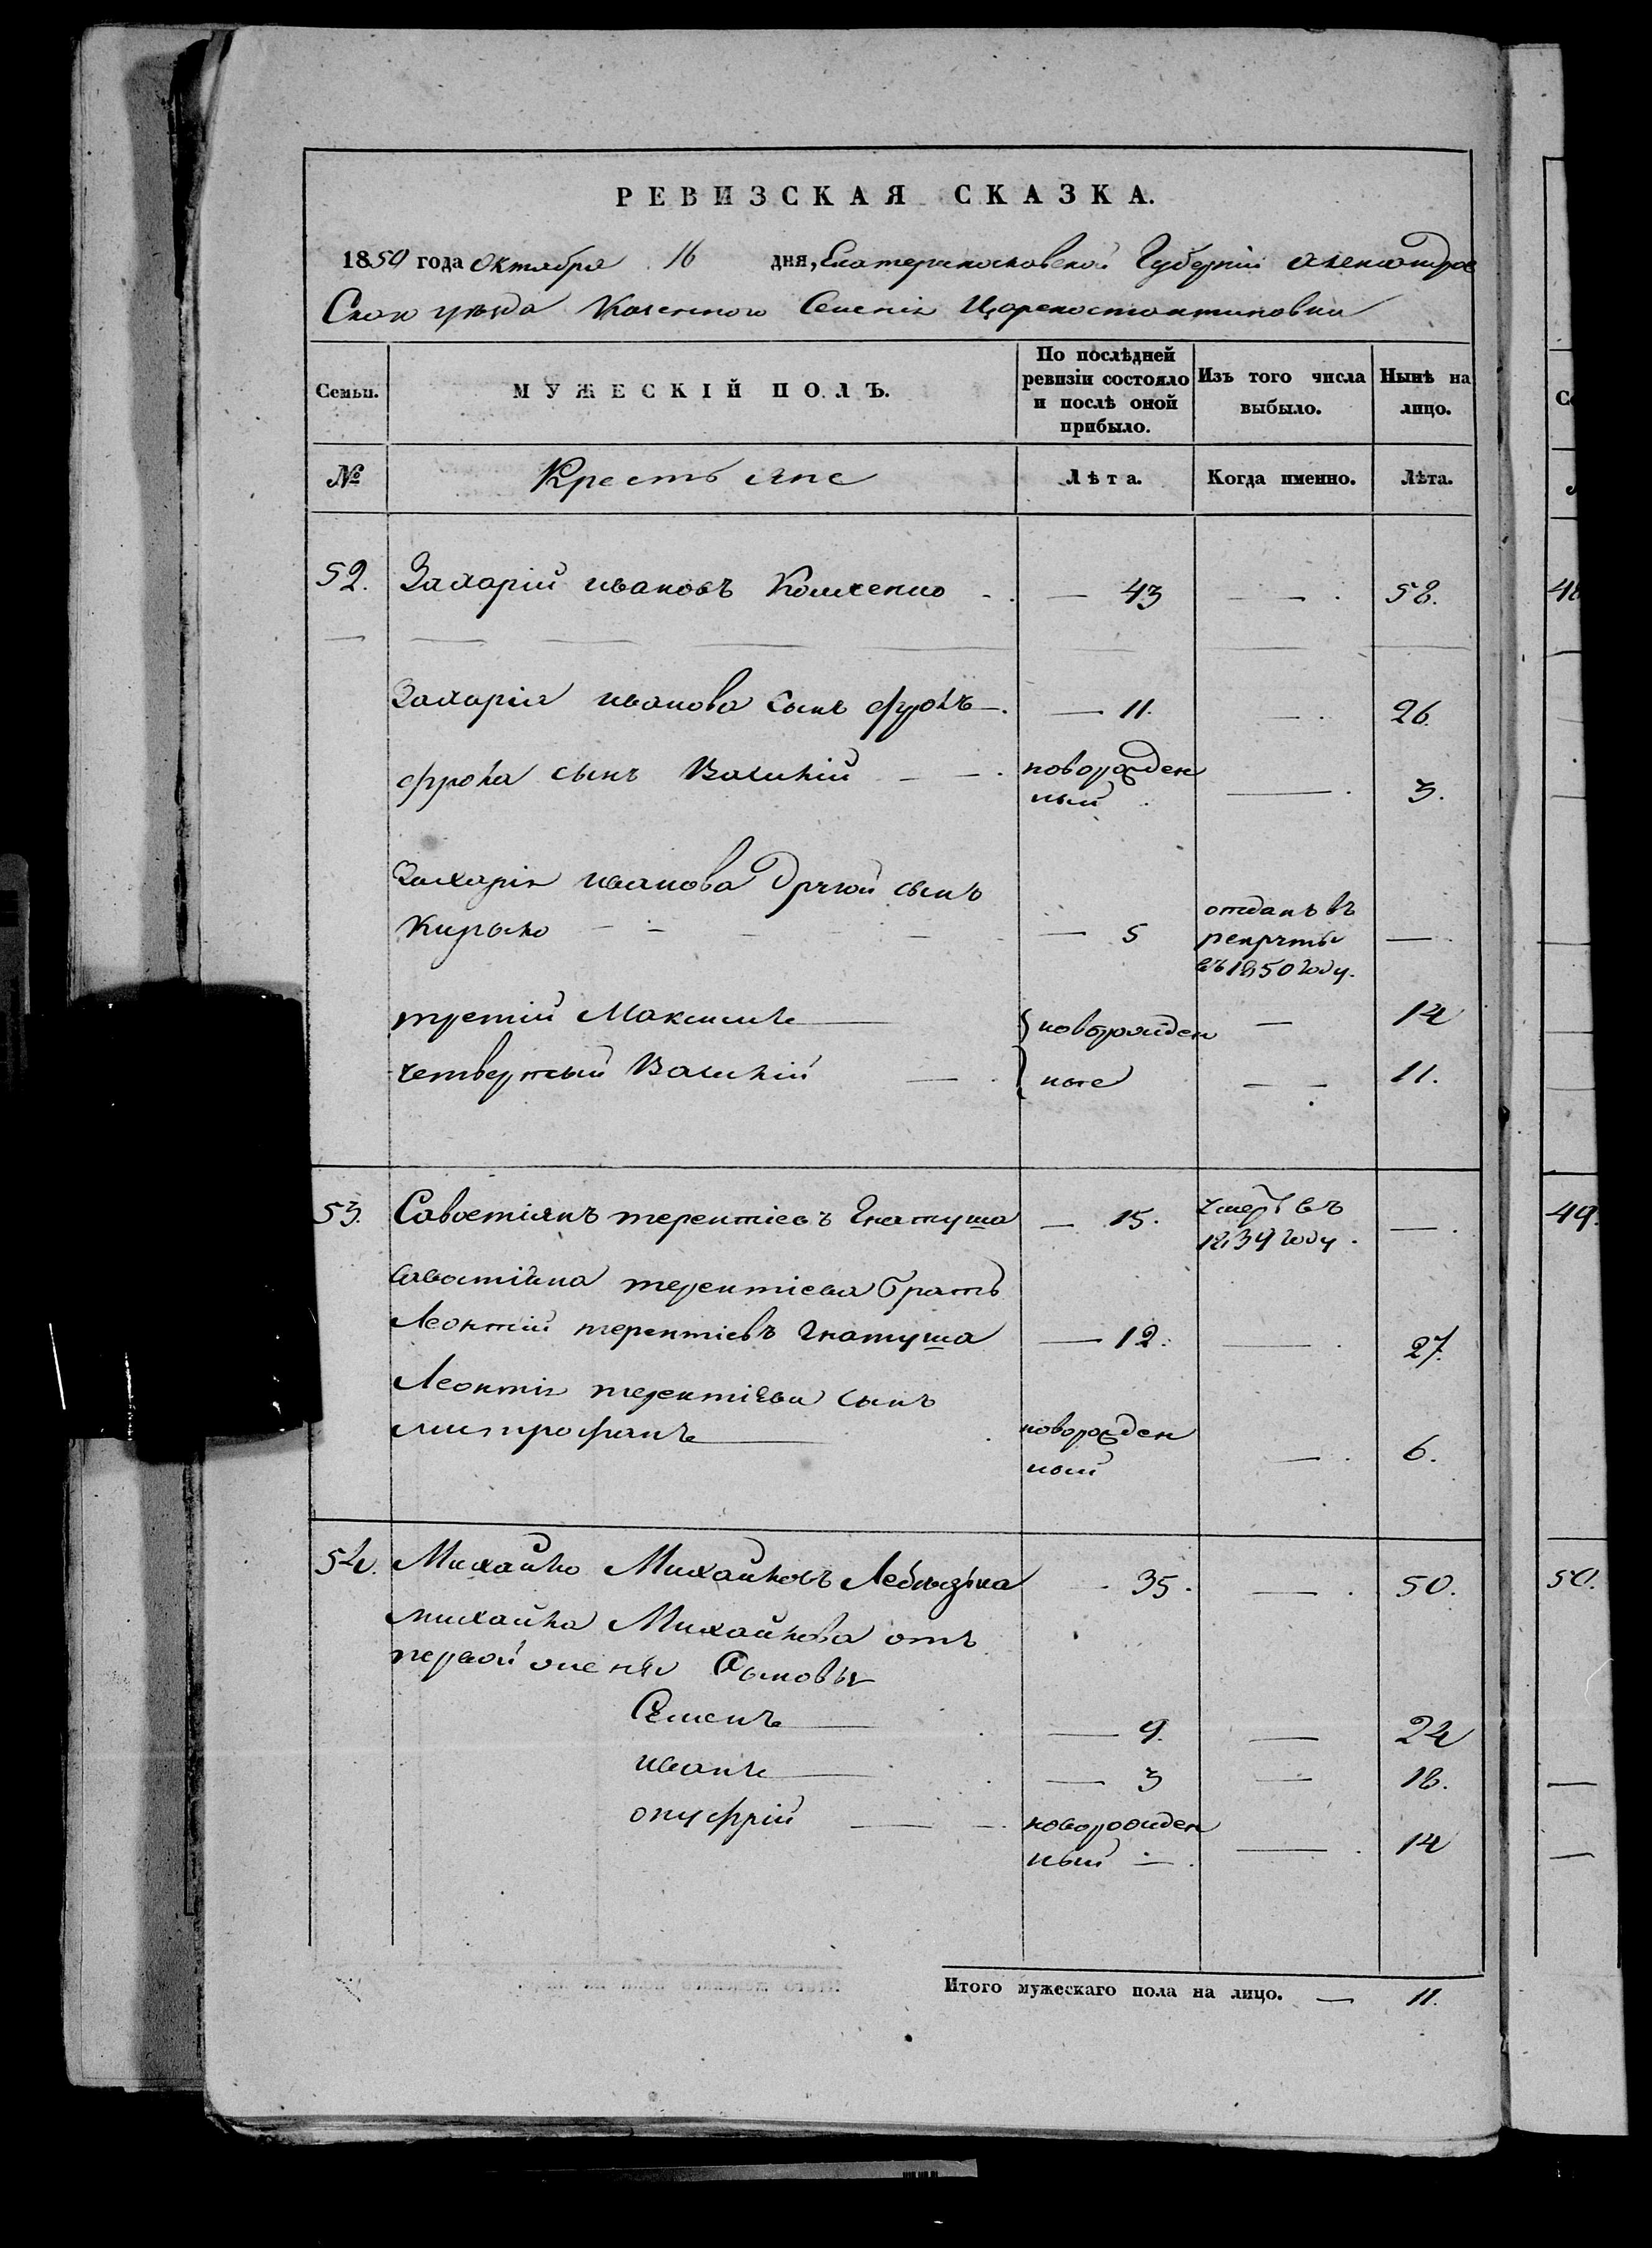 РЕВИЗСКАЯ СКАЗКА.
1850 года Октября 16 дня, Екатеринославской Губерніи Александров
Скаго уезда Казенного Селенія Цареконстантиновки
Семьи. МУЖЕСКІЙ ПОЛЪ. По послѣдней ревизіи состояло и послѣ оной прибыло. Изъ того числа выбыло. Нынѣ на лицо.
№ Крестьяне Лѣта. Когда именно. Лѣта.
52. Захарій ивановъ — 43 — 58.
Захарія иванова сынъ фролъ — 11. — 26.
фрола сынъ Василій — новорожден
ный — 3.
Захарія иванова другой сынъ
Кирыло — 5 отданъ въ
рекруты
въ 1850 году. —
третій Максимъ — новорожден — 14
четвертый Василій — ные — 11.
53. Савостіянъ терентіевъ Гнатуша — 15. умеръ въ
1839 году. —
Савостіяна терентіева братъ
Леонтій терентіевъ Гнатуша — 12. — 27.
Леонтія терентіева сынъ
митрофанъ — новорожден
ный — 6.
54. Михайло Михайловъ — 35. — 50.
михайла Михайлова отъ
первой жены Сыновья
Семенъ — 9. — 24
иванъ — 3 — 18.
онуфрій — новорожден
ный — 14
Итого мужескаго пола на лицо. — 11.
48
49.
50.